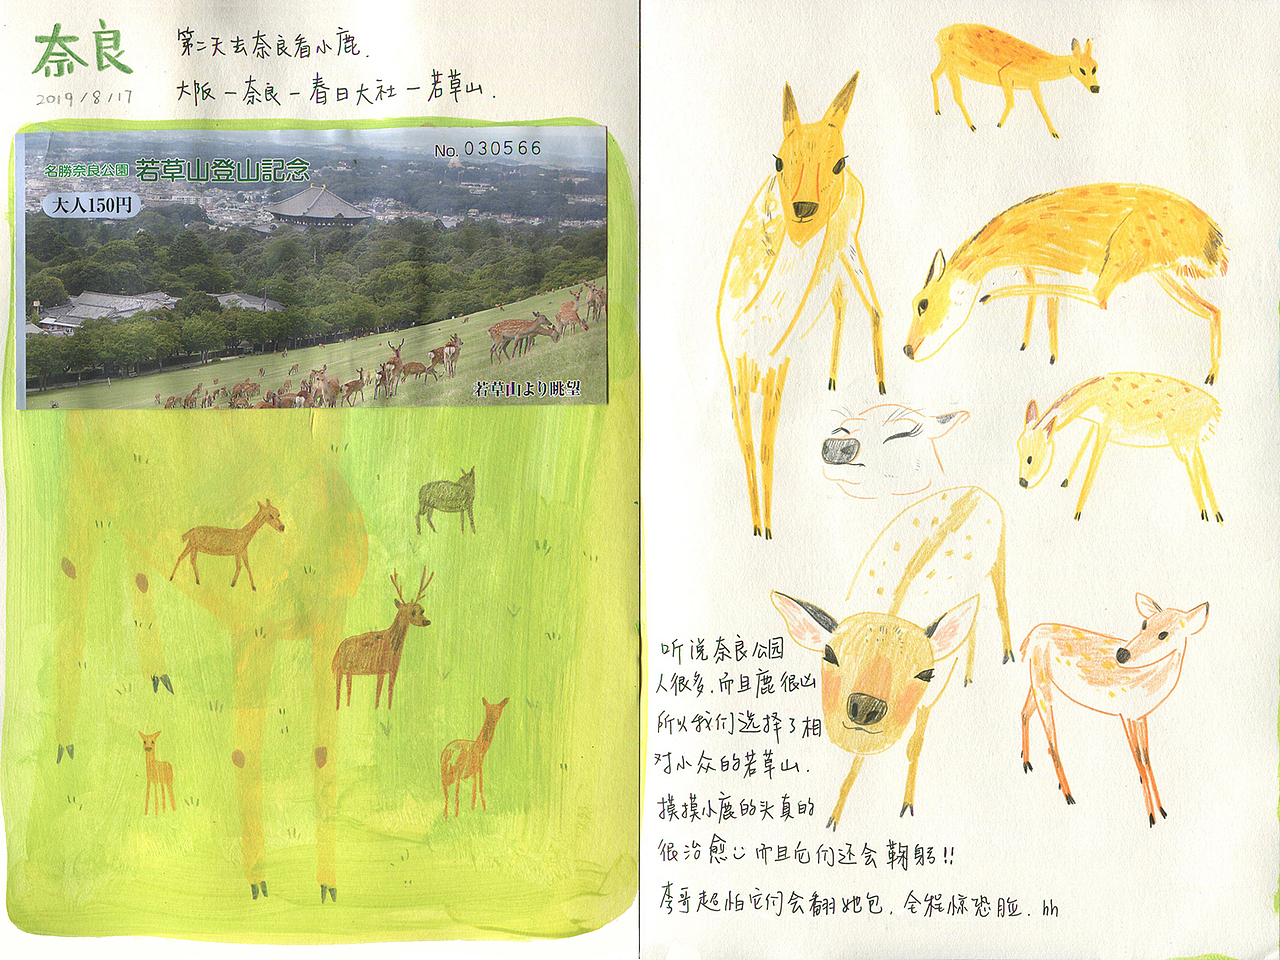 奈良
2019/8/17
第二天去奈良看小鹿.
大阪—奈良—春日大社—若草山.
No. 030566
名勝奈良公園 若草山登山記念
大人150円
若草山より眺望
听说奈良公园
人很多.而且鹿很凶
所以我们选择了相
对小众的若草山.
摸摸小鹿的头真的
很治愈:) 而且它们还会鞠躬!!
李哥超怕它们会翻她包.全程惊恐脸. hh